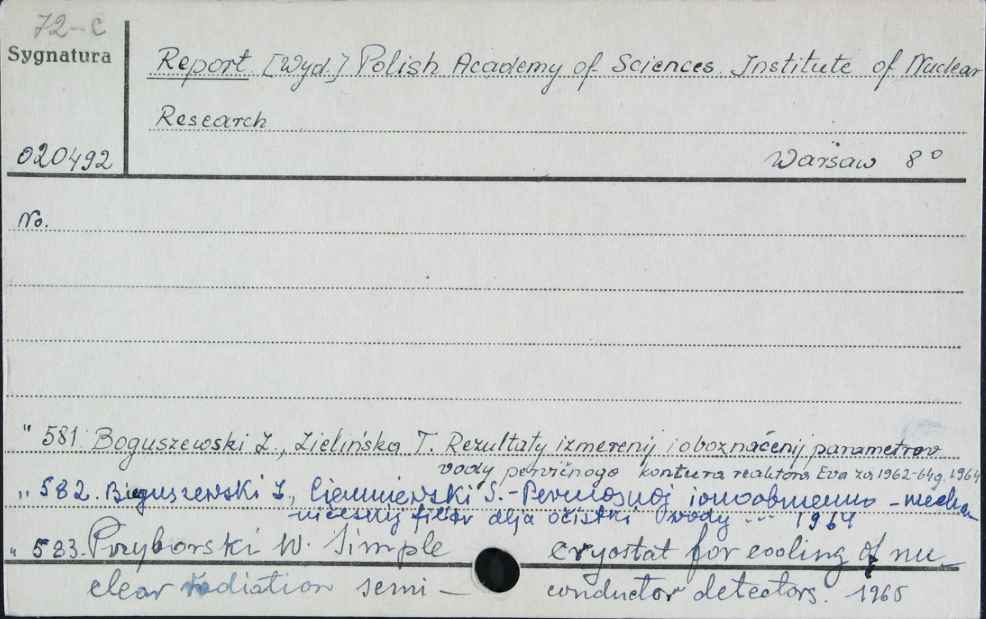 72-C
Sygnatura
020492
Report [Wyd.] Polish Academy of Sciences. Institute of Nuclear
Research
Warsaw 8°
No.
" 581. Boguszewski Z., Zielińska T. Rezultaty izmerenij i oboznačenij parametrov
vody pervičnogo kontura reaktora Eva za 1962-64g. 1964
" 582. Boguszewski Z., S. - ionoobmenno - mecha
ničeskij filtr dlja očistki vody ... 1964
" 583. Przyborski W. Simple cryostat for cooling of nu-
clear radiation semi - conductor detectors. 1965